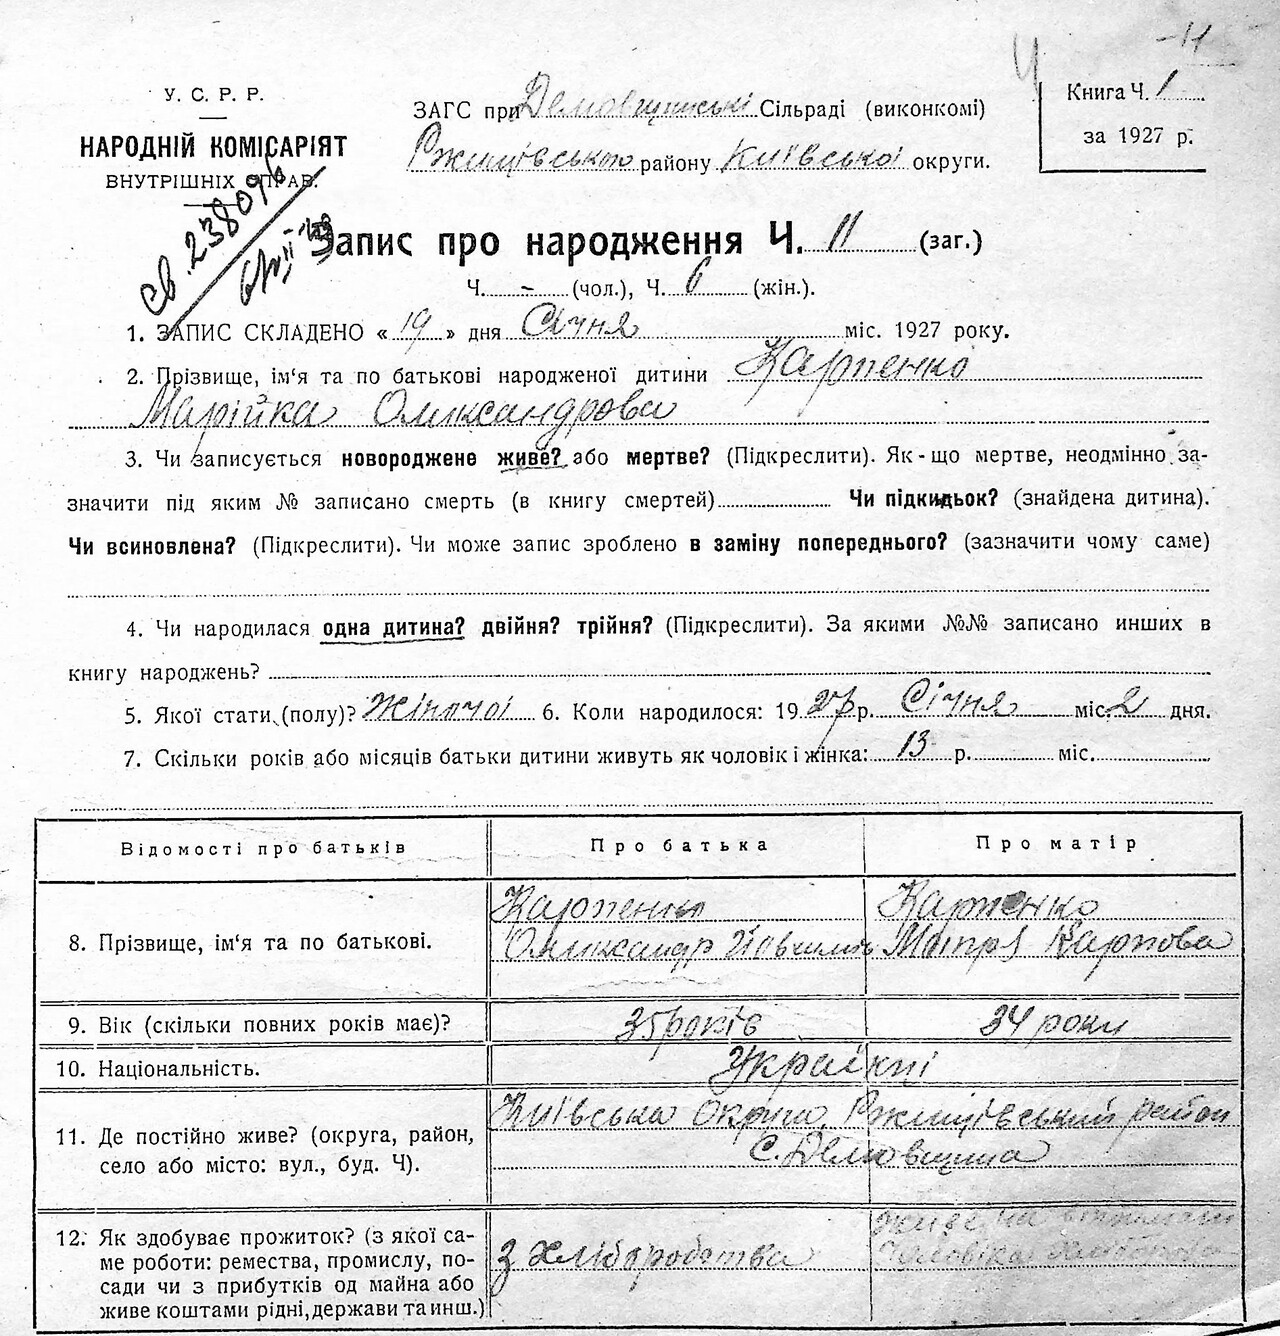 -11
У. С. Р. Р.
НАРОДНІЙ КОМІСАРІЯТ
ВНУТРІШНІХ СПРАВ.
ЗАГС при Демовщинські Сільраді (виконкомі)
Ржищівського району Київської округи.
Книга Ч. 1
за 1927 р.
св. 238096
Запис про народження Ч. 11 (заг.)
Ч. - (чол.), Ч. 6 (жін.).
1. ЗАПИС СКЛАДЕНО « 19 » дня Січня міс. 1927 року.
2. Прізвище, ім‘я та по батькові народженої дитини Карпенко
Марійка Олександрова
3. Чи записується новороджене живе? або мертве? (Підкреслити). Як-що мертве, неодмінно за-
значити під яким № записано смерть (в книгу смертей) Чи підкидьок? (знайдена дитина).
Чи всиновлена? (Підкреслити). Чи може запис зроблено в заміну попереднього? (зазначити чому саме)
4. Чи народилася одна дитина? двійня? трійня? (Підкреслити). За якими №№ записано инших в
книгу народжень?
5. Якої стати (полу)? Жіночоі 6. Коли народилося: 1927 р. Січня міс. 2 дня.
7. Скільки років або місяців батьки дитини живуть як чоловік і жінка: 13 р. міс.
Відомості про батьків Про батька Про матір
8. Прізвище, ім‘я та по батькові. Карпенко Олександр Карпенко Карпова
9. Вік (скільки повних років має)? 35 років 34 роки
10. Національність. Українці
11. Де постійно живе? (округа, район, Київська округа, Ржищівський район
село або місто: вул., буд. Ч). С. Демовщина
12. Як здобуває прожиток? (з якої са-
ме роботи: ремества, промислу, по- з хліборобства
сади чи з прибутків од майна або
живе коштами рідні, держави та инш.)